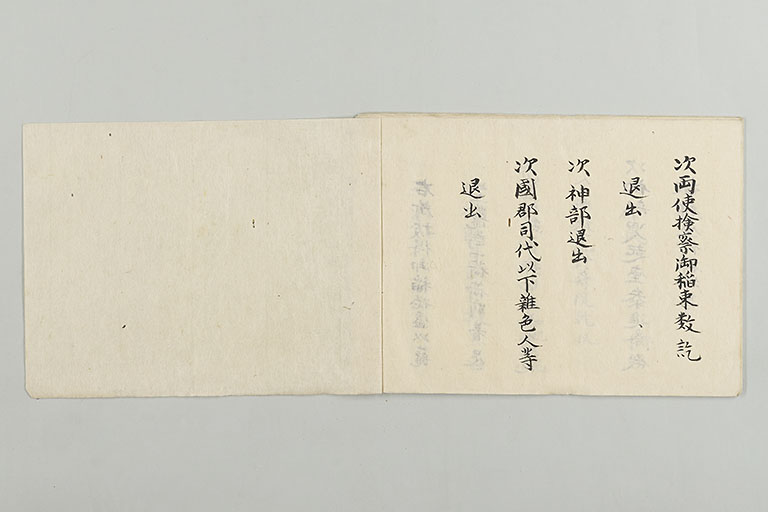 次両使検察御稲束数訖
退出
次神部退出
次國郡司代以下雜色人等
退出